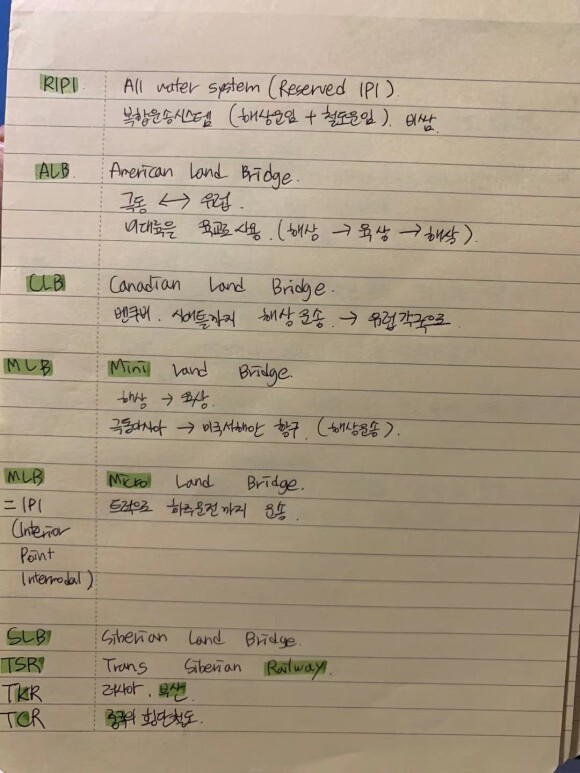 RIPI All water system (Reserved IPI).
복합운송시스템 (해상운임 + 철도운임). 비쌈.
ALB American Land Bridge.
극동 ↔ 유럽.
미대륙을 육교로 사용. (해상 → 육상 → 해상).
CLB Canadian Land Bridge.
벤쿠버. 시애틀까지 해상운송. → 유럽각국으로
MLB Mini Land Bridge.
해상 → 육상.
극동아시아 → 미국서해안 항구. (해상운송).
MLB Micro Land Bridge.
= IPI 트럭으로 하주문전까지 운송.
(Interior
Point
Intermodal)
SLB Siberian Land Bridge.
TSR Trans Siberian Railway.
TKR 러시아.
TCR 중국의 횡단철도.